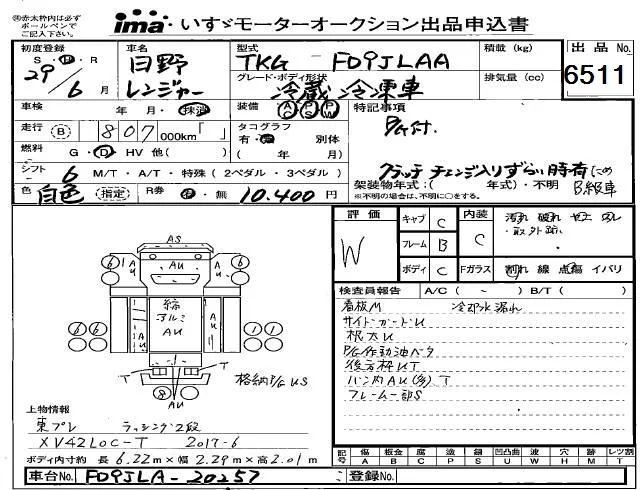 ㊟赤太枠内は必ず
ボールペンで
ご記入下さい。
ima いすゞモーターオークション出品申込書
初度登録 車名 型式 積載 (kg) 出品No.
S・H・R 日野 TKG- FD9JLAA 6511
29年 6月 レンジャー グレード・ボディ形状 排気量 (cc)
冷蔵冷凍車
車検 年・月・抹消 装備 AC PS PW 特記事項
P/G付.
走行 (B) 807,000km「 」 タコグラフ 有・無 別体
燃料 G・D・HV 他( ) ( 年 月)
クラッチ チェンジ入りずらい時有(この
シフト 6 M/T・A/T・特殊(2ペダル・3ペダル) 架装物年式:( 年式)・不明 B級車
色 白色 (指定) R券 有・無 10,400円 ※不明の場合は、不明に○をする。
評価 キャブ C 内装 汚れ 破れ
W フレーム B C ・取外跡
ボディ C Fガラス 割れ 線 点傷 イバリ
検査員報告 A/C(~ ) B/T( )
看板M 冷却水漏れ
サイドガードU
根太U
P/G作動油ベタ
後方枠UT
バン内AU(多)T
フレーム一部S
AS
6 6
A U AU A U
縞
アルミ
AU
6 6 1 1
T T
8
AU
格納P/G US
上物情報
東プレ ラッシング2段
XV42LOC-T 2017-6
ボディ内寸約 長6.22m×幅2.29m×高2.01m
記号 傷A 板金B 腐C 塗P 錆S 凹凸曲U 波W 穴H 跡M レツ割T
車台No. FD9JLA-20257 登録No.